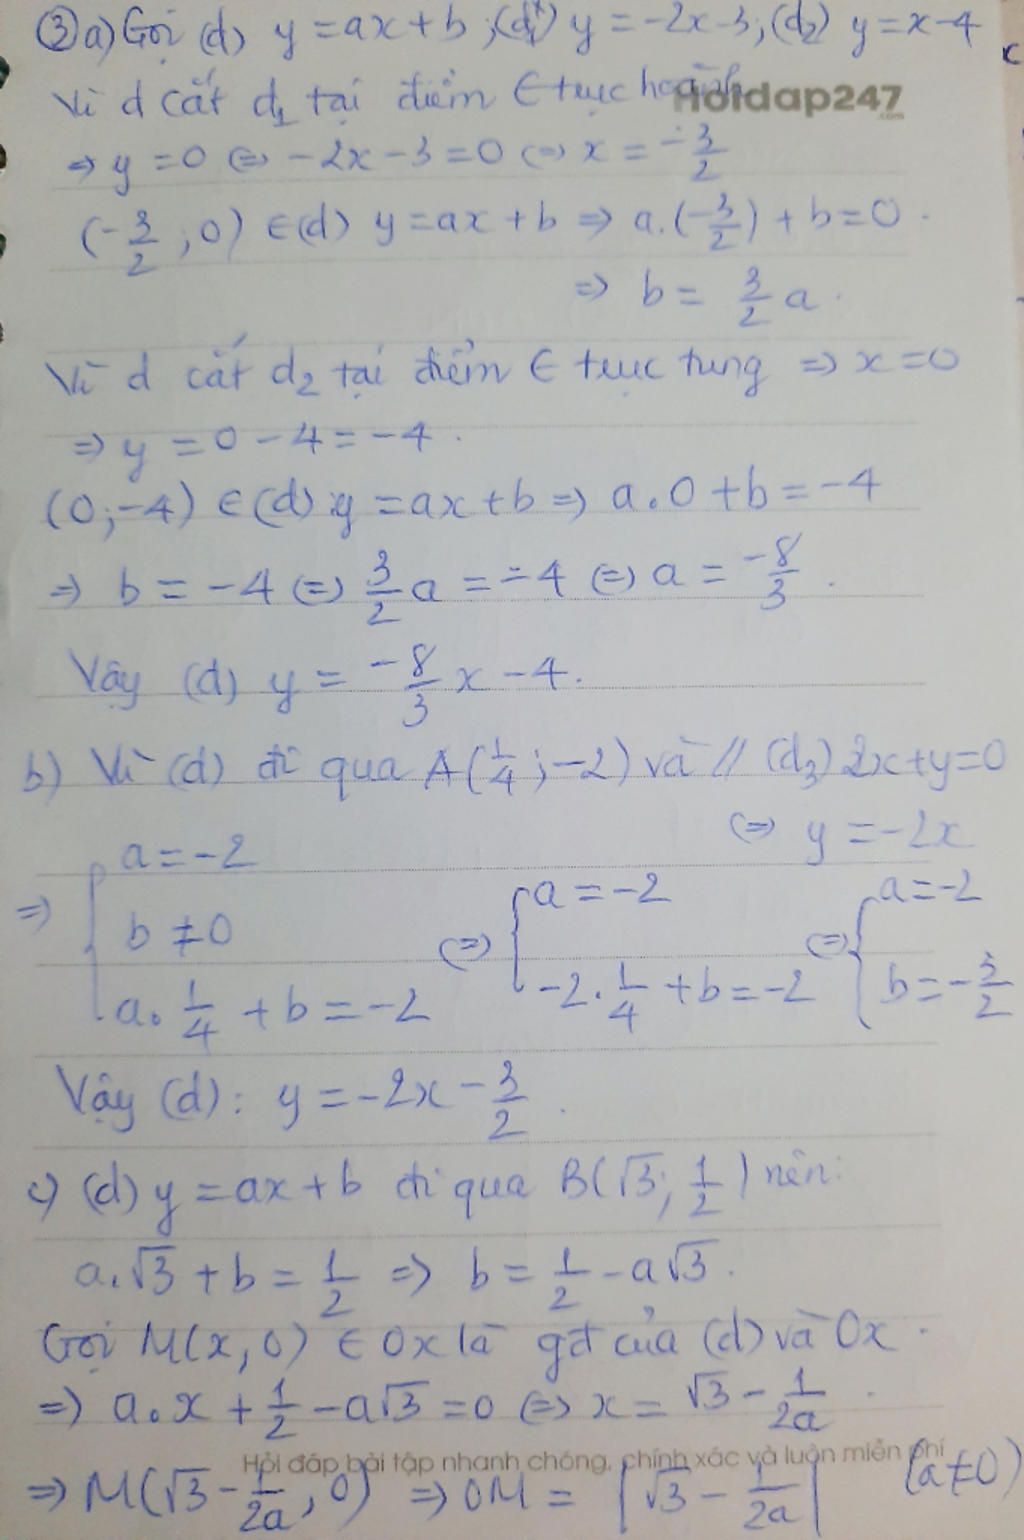 ③a) Gọi (d) y = ax + b ; (d₁) y = -2x-3, (d₂) y = x - 4
Vì d cắt d₁ tại điểm ∈ trục hoành
Hoidap247
.com
⇒ y = 0 ⇔ -2x - 3 = 0 ⇔ x = -3/2
(-3/2 ; 0) ∈ (d) y = ax + b ⇒ a.(-3/2) + b = 0.
⇒ b = 3/2 a.
Vì d cắt d₂ tại điểm ∈ trục tung ⇒ x = 0
⇒ y = 0 - 4 = -4.
(0;-4) ∈ (d) y = ax + b ⇒ a.0 + b = -4
⇒ b = -4 ⇔ 3/2 a = -4 ⇔ a = -8/3.
Vậy (d) y = -8/3 x - 4.
b) Vì (d) đi qua A(1/4 ; -2) và // (d₃) 2x+y=0
⇔ y = -2x
⇒ { a = -2 ; b ≠ 0 ; a. 1/4 + b = -2 ⇔ { a = -2 ; -2. 1/4 + b = -2 ⇔ { a = -2 ; b = -3/2
Vậy (d): y = -2x - 3/2.
c) (d) y = ax + b đi qua B(√3; 1/2) nên:
a.√3 + b = 1/2 ⇒ b = 1/2 - a√3.
Gọi M(x, 0) ∈ Ox là gđ của (d) và Ox.
⇒ a.x + 1/2 - a√3 = 0 ⇔ x = √3 - 1/2a.
Hỏi đáp bài tập nhanh chóng, chính xác và luôn miễn phí
⇒ M(√3 - 1/2a, 0) ⇒ OM = |√3 - 1/2a| (a≠0)